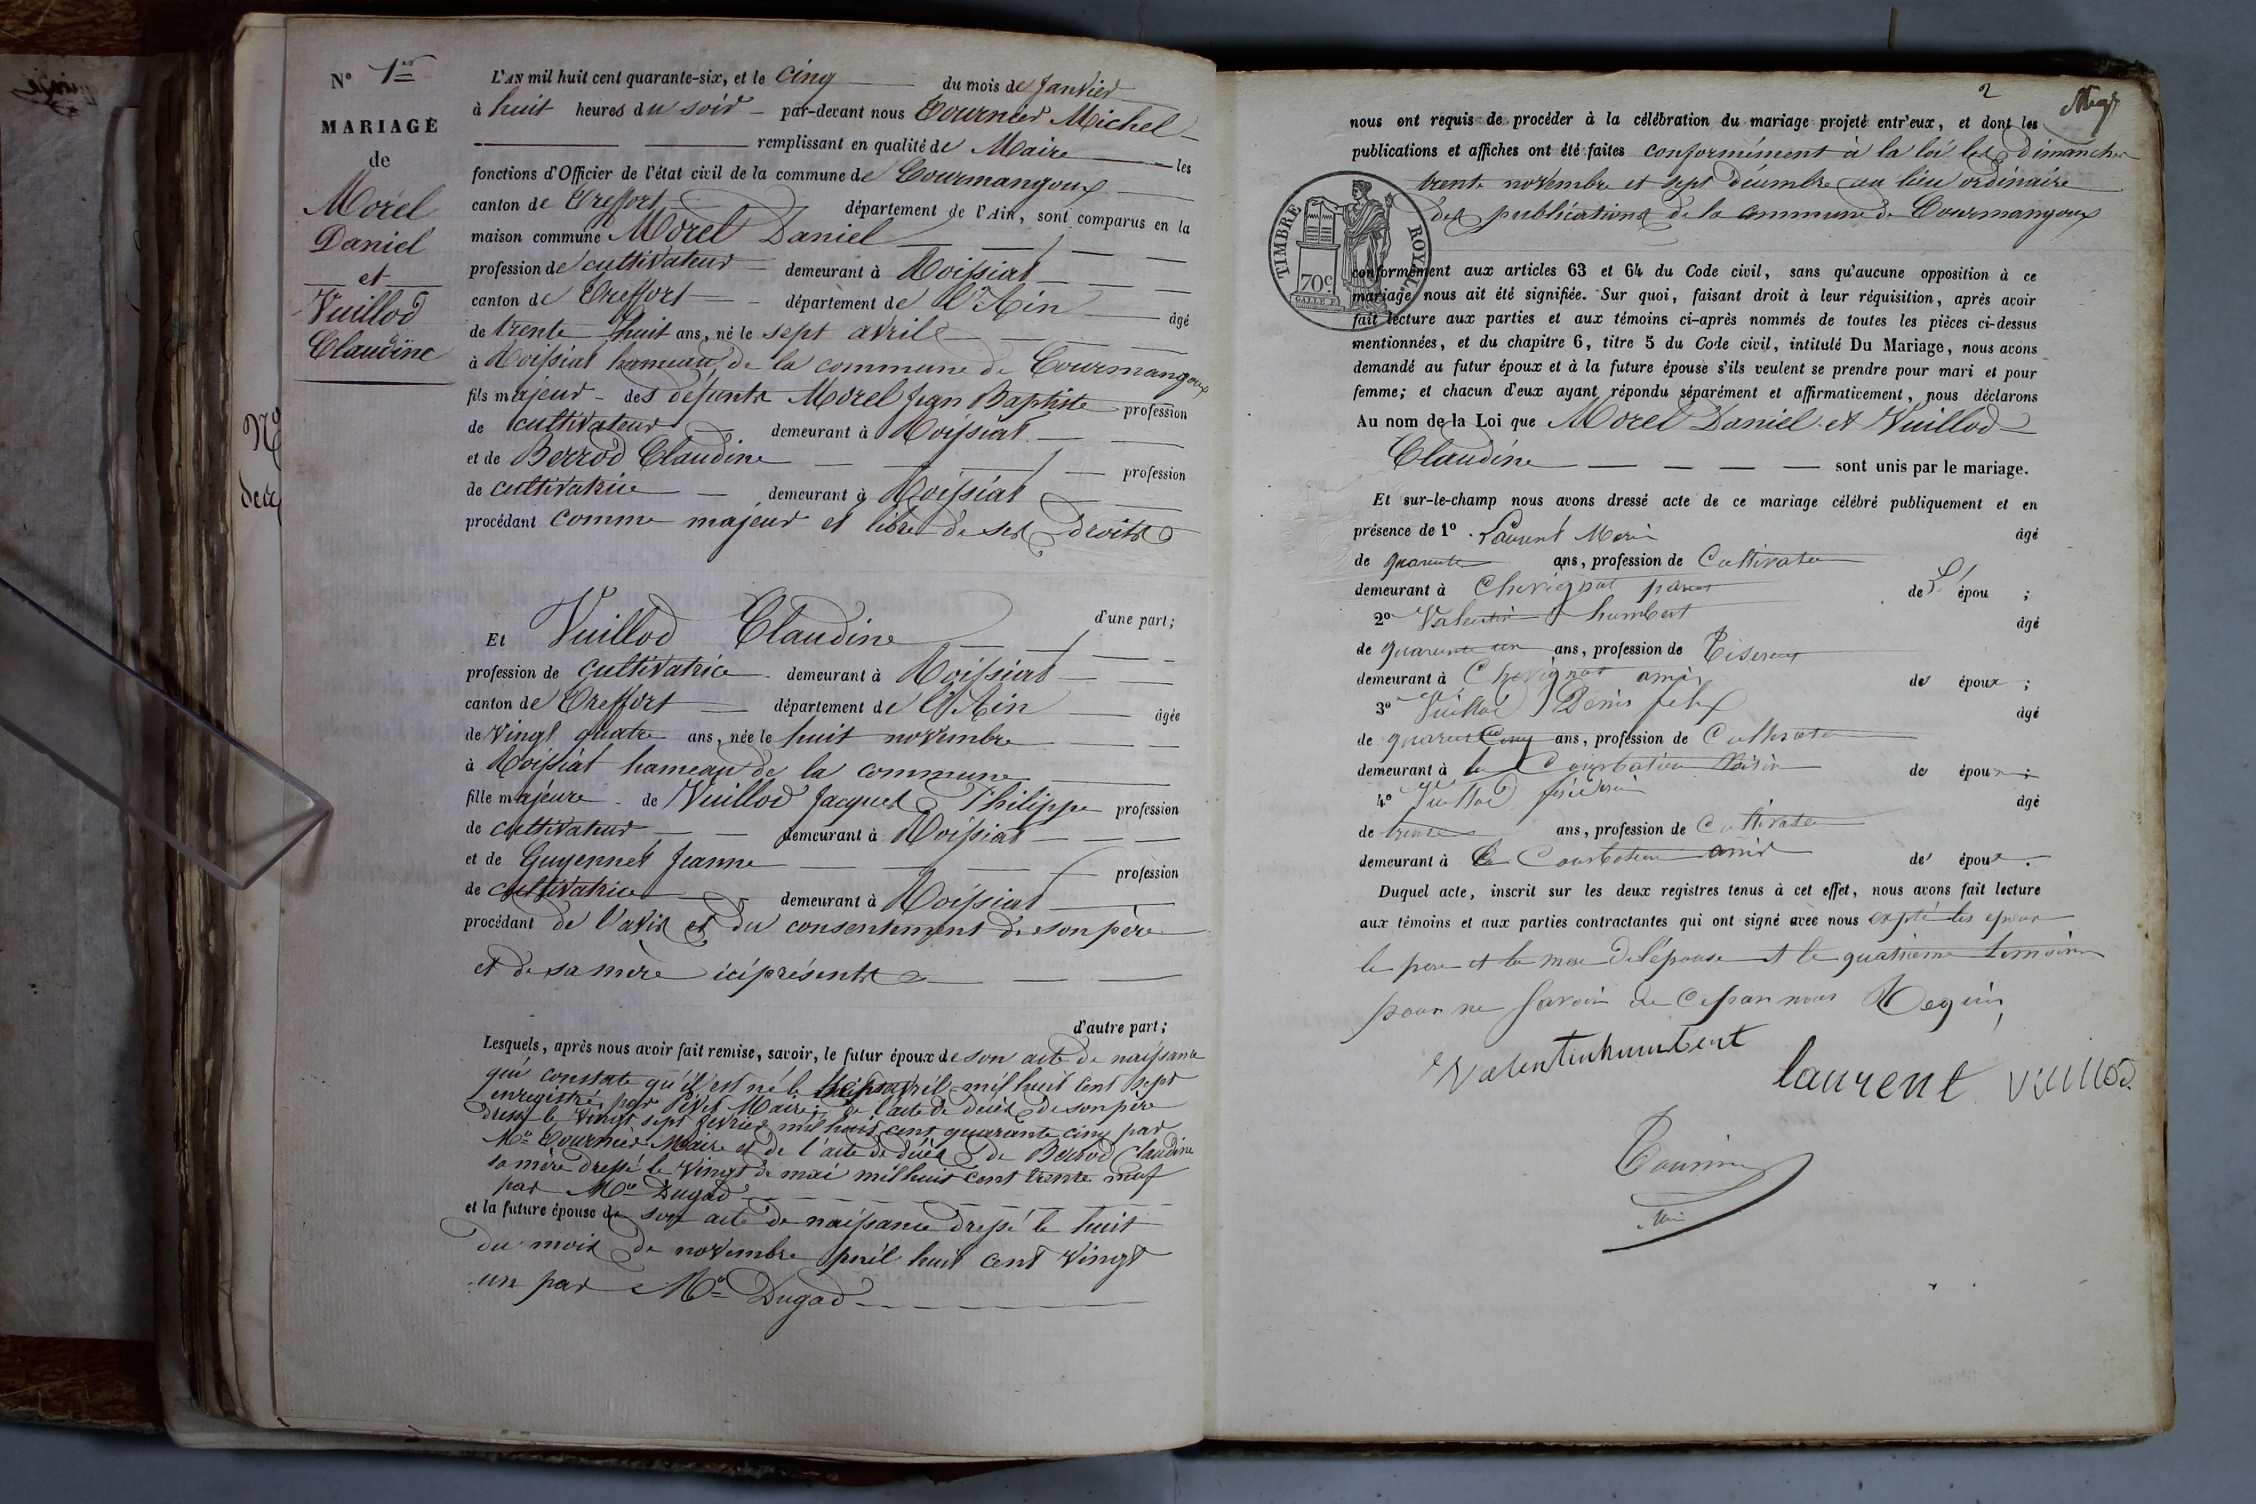 N° 1er
MARIAGE
de
Morel
Daniel
et
Vuillod
Claudine
L'AN mil huit cent quarante-six, et le cinq du mois de Janvier
à huit heures du soir par-devant nous Tournier Michel
remplissant en qualité de Maire les
fonctions d'Officier de l'état civil de la commune de Courmangoux
canton de Treffort département de l'Ain, sont comparus en la
maison commune Morel Daniel
profession de cultivateur demeurant à Roissiat
canton de Treffort département de l'Ain âgé
de trente huit ans, né le sept avril
à Roissiat hameau de la commune de Courmangoux
fils majeur des défunts Morel Jean Baptiste profession
de cultivateur demeurant à Roissiat
et de Berrod Claudine profession
de cultivatrice demeurant à Roissiat
procédant comme majeur et libre de ses droits
d'une part;
Et Vuillod Claudine
profession de cultivatrice demeurant à Roissiat
canton de Treffort département de l'Ain âgée
de vingt quatre ans, née le huit novembre
à Roissiat hameau de la commune
fille majeure de Vuillod Jacques Philippe profession
de cultivateur demeurant à Roissiat
et de Guyennet Jeanne profession
de cultivatrice demeurant à Roissiat
procédant de l'avis et du consentement de son père
et de sa mère ici présents
d'autre part;
Lesquels, après nous avoir fait remise, savoir, le futur époux de son acte de naissance
qui constate qu'il est né le avril mil huit cent sept
enregistré par Maire; de l'acte de décès de son père
dressé le vingt sept février mil huit cent quarante cinq par
Mr Tournier Maire et de l'acte de décès de Berrod Claudine
sa mère dressé le vingt de mai mil huit cent trente neuf
par Mr Dugad
et la future épouse de son acte de naissance dressé le huit
du mois de novembre mil huit cent vingt
un par Mr Dugad
2
nous ont requis de procéder à la célébration du mariage projeté entr'eux, et dont les
publications et affiches ont été faites conformément à la loi les dimanches
trente novembre et sept décembre au lieu ordinaire
des publications de la commune de Courmangoux
TIMBRE ROYAL
70c
conformément aux articles 63 et 64 du Code civil, sans qu'aucune opposition à ce
mariage nous ait été signifiée. Sur quoi, faisant droit à leur réquisition, après avoir
fait lecture aux parties et aux témoins ci-après nommés de toutes les pièces ci-dessus
mentionnées, et du chapitre 6, titre 5 du Code civil, intitulé Du Mariage, nous avons
demandé au futur époux et à la future épouse s'ils veulent se prendre pour mari et pour
femme; et chacun d'eux ayant répondu séparément et affirmativement, nous déclarons
Au nom de la Loi que Morel Daniel et Vuillod
Claudine sont unis par le mariage.
Et sur-le-champ nous avons dressé acte de ce mariage célébré publiquement et en
présence de 1° Laurent âgé
de quarante ans, profession de Cultivateur
demeurant à Chevignat parent de L' épou ;
2° Valentin humbert âgé
de quarante un ans, profession de Tisserant
demeurant à Chevignat amis des époux ;
3° Vuillod Denis felix âgé
de quarante Cinq ans, profession de Cultivateur
demeurant à la Courbatiere Voisin des époux ;
4° Vuillod âgé
de trente ans, profession de Cultivateur
demeurant à la Courbatiere amis des époux .
Duquel acte, inscrit sur les deux registres tenus à cet effet, nous avons fait lecture
aux témoins et aux parties contractantes qui ont signé avec nous expté les epoux
le pere et la mere De l'épouse et le quatrieme temoin
pour ne savoir de Ce par nous Requis
Valentinhumbert
laurent Vuillod
Tournier
Maire